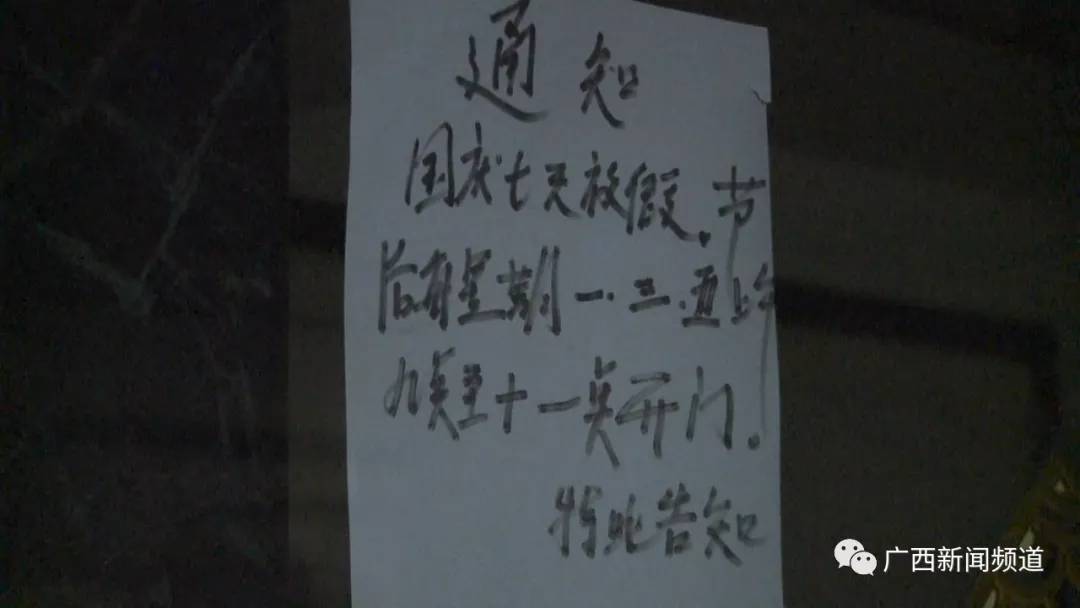 通知
国庆七天放假.节
后有星期一.三.五上午
九点至十一点开门.
特此告知
广西新闻频道